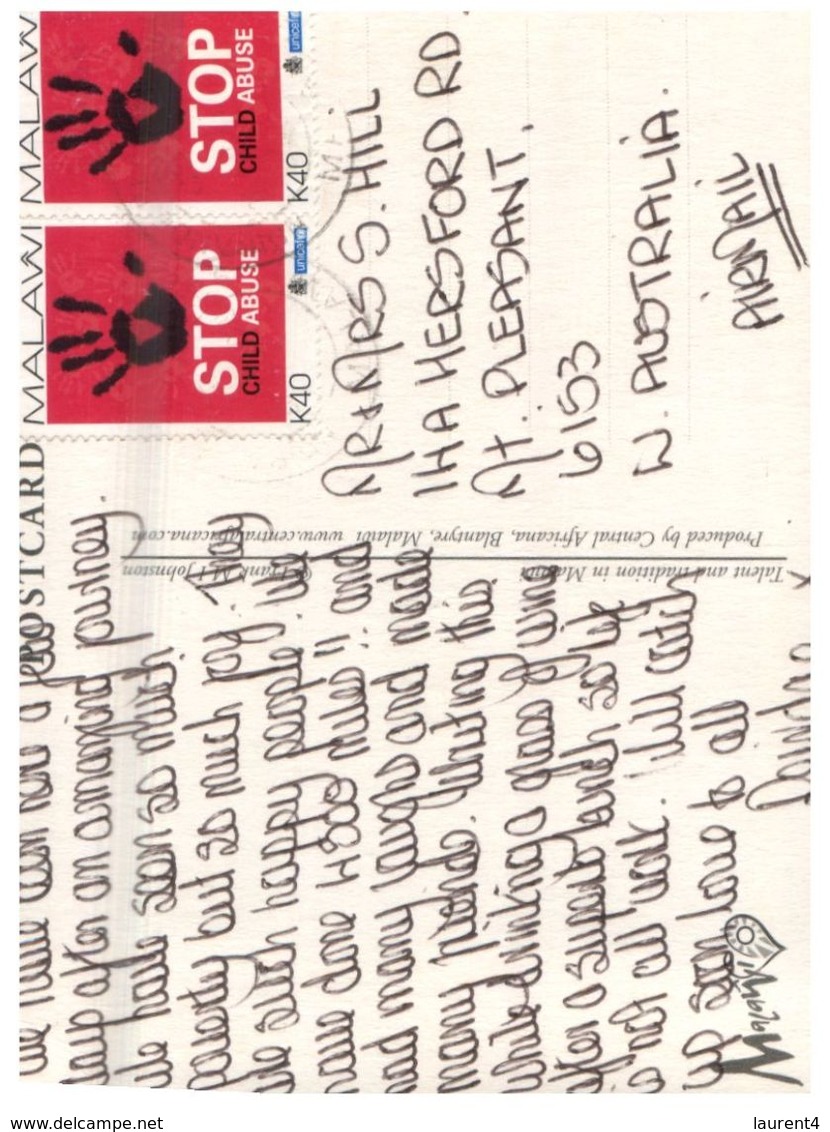 POSTCARD
MALAWI
STOP
CHILD ABUSE
unicef
K40
MALAWI
STOP
CHILD ABUSE
unicef
K40
we have been here a few
days after an amazing journey.
We have seen so much
poverty but so much joy. They
are such happy people. We
have done 4300 miles!! and
had many laughs and made
many friends. Writing this
while drinking a glass of wine
after a superb lunch so life
is not all work. Will catch
up soon love to all
MR & MRS S. HILL
14A HERSFORD RD
Mt. PLEASANT.
6153
W. AUSTRALIA.
AIRMAIL
Talent and tradition in Malawi © Frank M I Johnston
Produced by Central Africana, Blantyre, Malawi www.centralafricana.com
Malawi
www.delcampe.net
laurent4